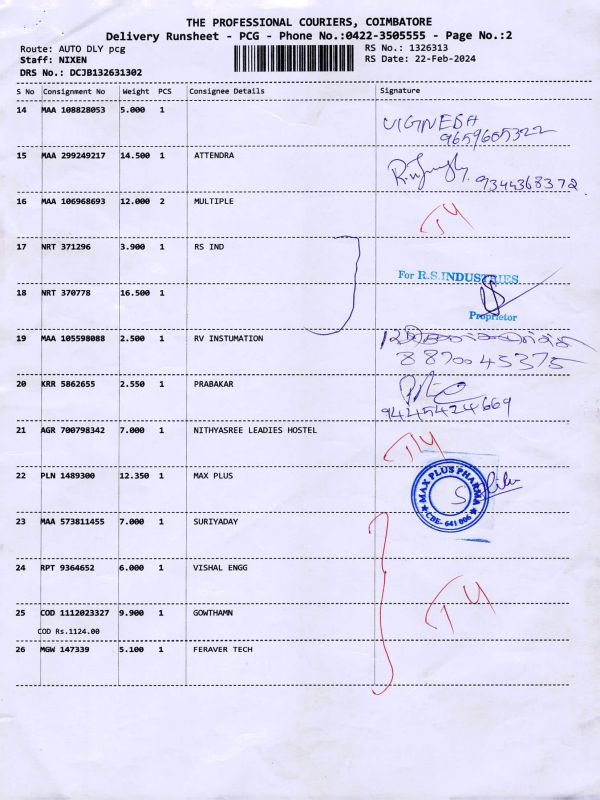 THE PROFESSIONAL COURIERS, COIMBATORE
Delivery Runsheet - PCG - Phone No.:0422-3505555 - Page No.:2
Route: AUTO DLY pcg RS No.: 1326313
Staff: NIXEN RS Date: 22-Feb-2024
DRS No.: DCJB132631302
S No Consignment No Weight PCS Consignee Details Signature
14 MAA 108828053 5.000 1
VIGNESH
9659605322
15 MAA 299249217 14.500 1 ATTENDRA
9344368372
16 MAA 106968693 12.000 2 MULTIPLE
TY
17 NRT 371296 3.900 1 RS IND
For R.S.INDUSTRIES
18 NRT 370778 16.500 1
Proprietor
19 MAA 105598088 2.500 1 RV INSTUMATION
8870045375
20 KRR 5862655 2.550 1 PRABAKAR
9445424669
21 AGR 700798342 7.000 1 NITHYASREE LEADIES HOSTEL
TY
22 PLN 1489300 12.350 1 MAX PLUS
MAX PLUS PHARMA
CBE- 641 006
23 MAA 573811455 7.000 1 SURIYADAY
24 RPT 9364652 6.000 1 VISHAL ENGG
TY
25 COD 1112023327 9.900 1 GOWTHAMN
COD Rs.1124.00
26 MGW 147339 5.100 1 FERAVER TECH